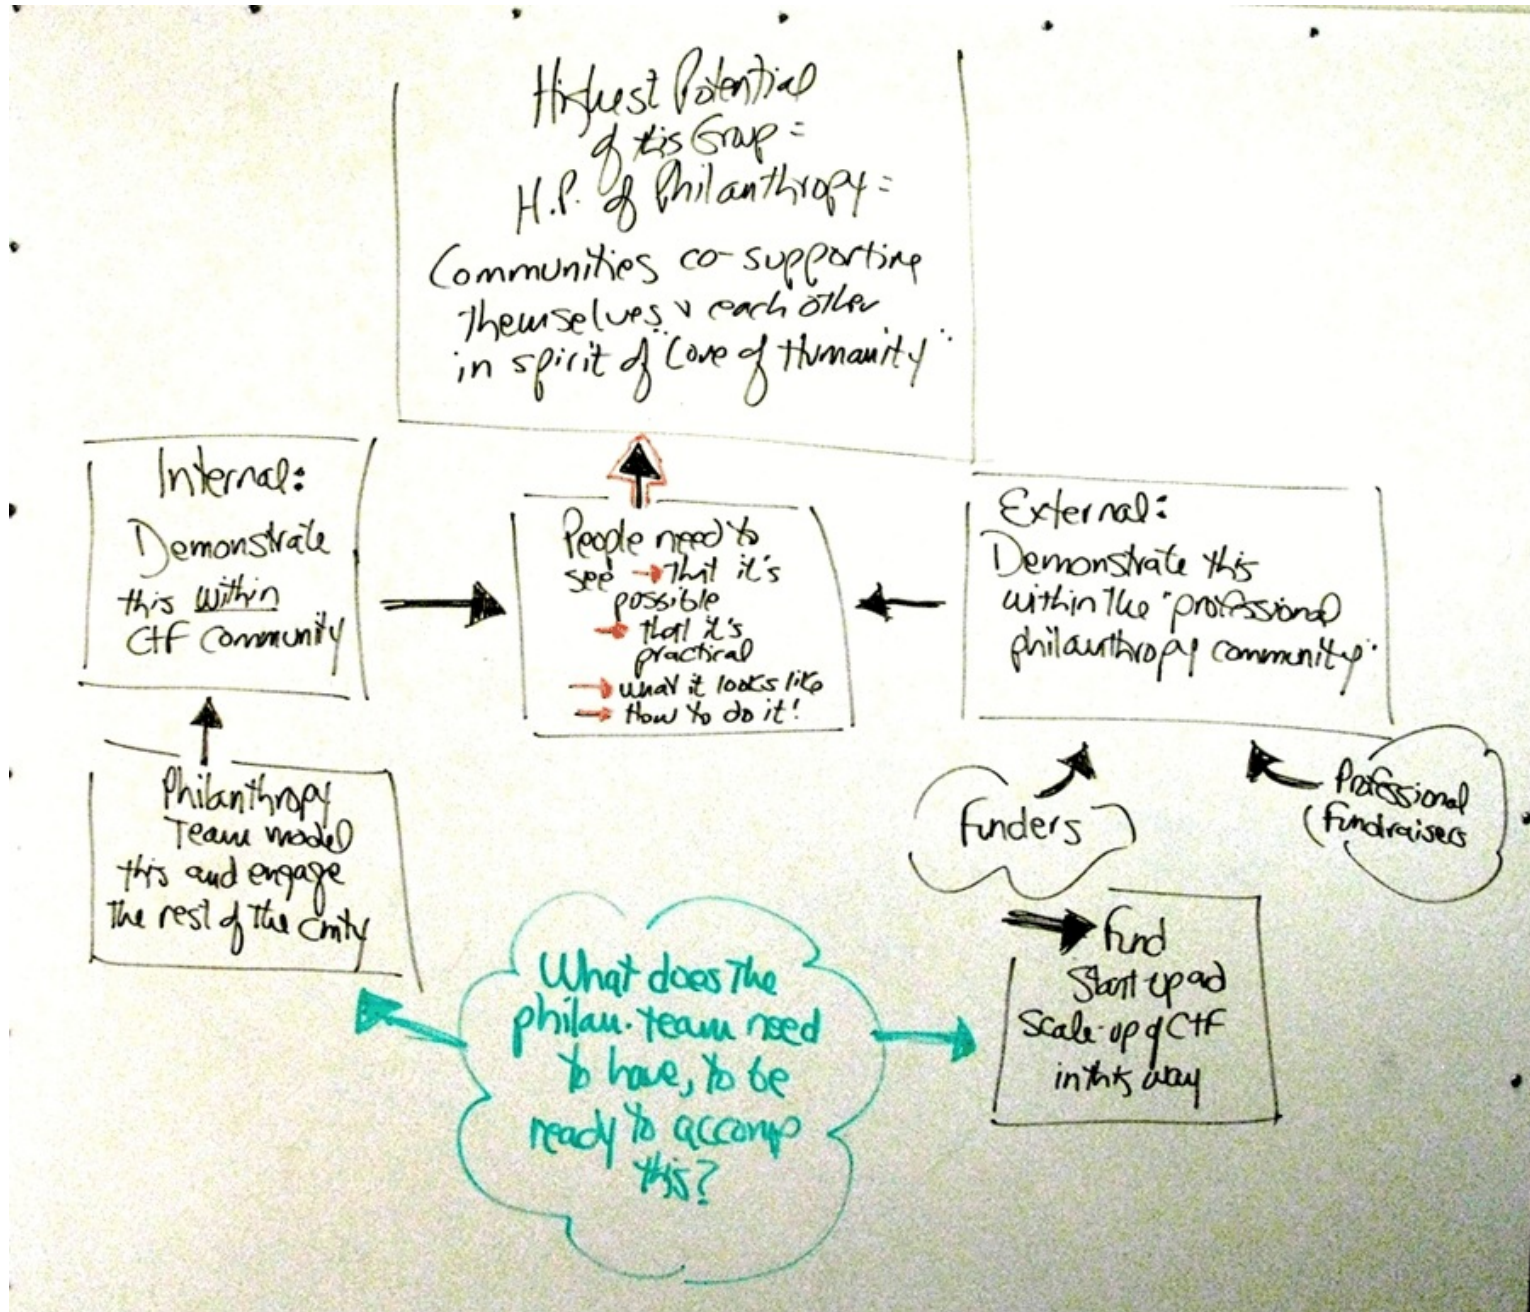 Highest Potential
of this Group =
H.P. of Philanthropy =
Communities co-supporting
themselves & each other
in spirit of "Love of Humanity"
Internal:
Demonstrate
this within
CTF community
People need to
see → that it's
possible
→ that it's
practical
→ what it looks like
→ How to do it!
External:
Demonstrate this
within the "professional
philanthropy community"
Philanthropy
Team model
this and engage
the rest of the cmty
Funders
Professional
fundraisers
Fund
Start up and
Scale-up of CTF
in this way
What does the
philan. team need
to have, to be
ready to accomp
this?